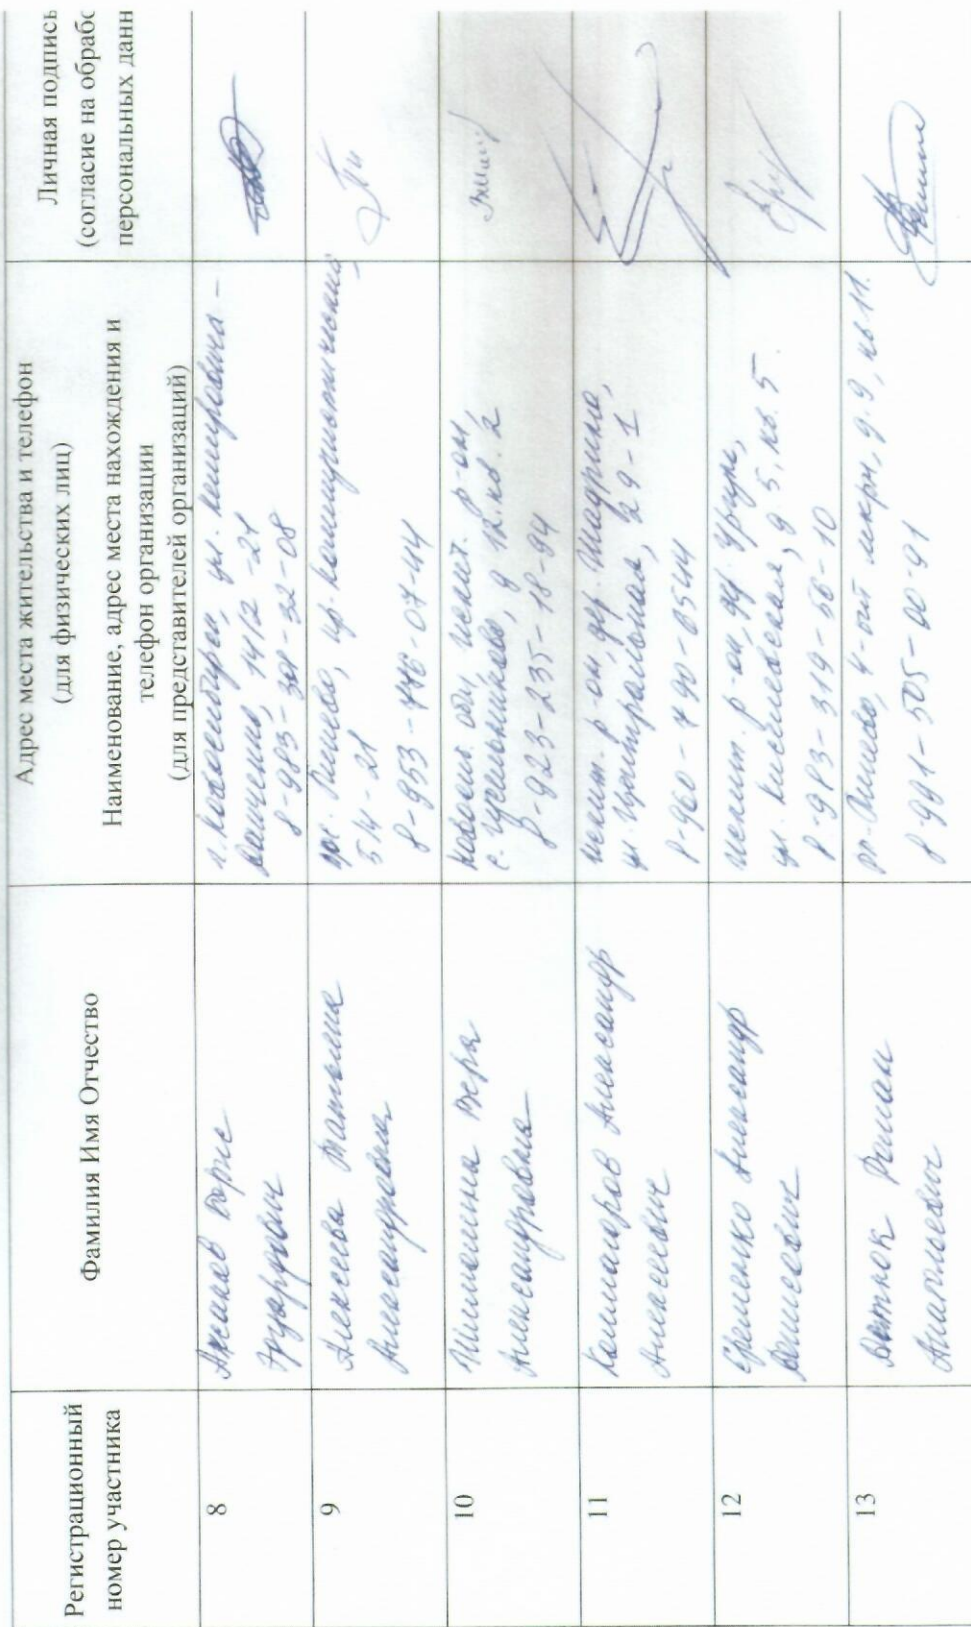 Регистрационный
номер участника
Фамилия Имя Отчество
Адрес места жительства и телефон
(для физических лиц)
Наименование, адрес места нахождения и
телефон организации
(для представителей организаций)
Личная подпись
(согласие на обрабо
персональных данн
8
Борис
Эдуардович
г. Новосибирск, ул.
14/2 - 21
8-983-301-32-08
9
Алексеева Наталья
Александровна
пос. Линево, пр. Коммунистический,
5/4 - 21
8-953-776-07-44
10
Шишкина Вера
Александровна
Новосиб. обл, Искит. р-он,
12. кв. 2
8-923-235-18-94
11
Каллагаров Александр
Алексеевич
Искит. р-он, др. Шадрино,
ул. Центральная, 29-1
8-960-790-0544
12
Еременко Александр
Денисович
Искит. р-он, др. Ургун,
д 5, кв. 5
8-983-319-56-10
13
Роман
Анатольевич
рп. Линево, 4-ый мкрн, д. 9, кв 11.
8-991-505-00-91